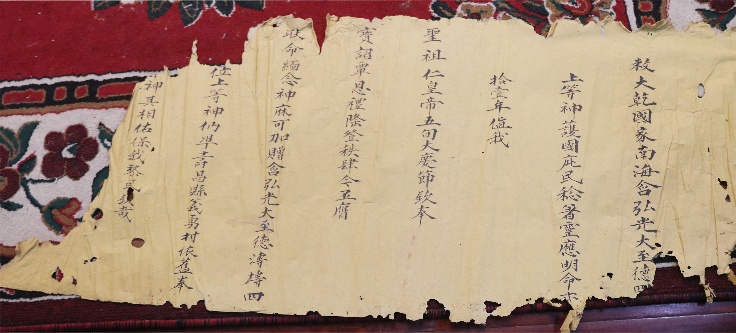 敕大乾國家南海含弘光大至德四
上等神護國庇民稔著靈應明命
拾壹年值我
聖祖仁皇帝五旬大慶節欽奉
寶詔覃恩禮隆登秩肆今丕膺
耿命緬念神庥可加贈含弘光大至德溥博四
位上等神仍準壽昌縣義勇村依舊奉
神其相佑保我黎民欽哉